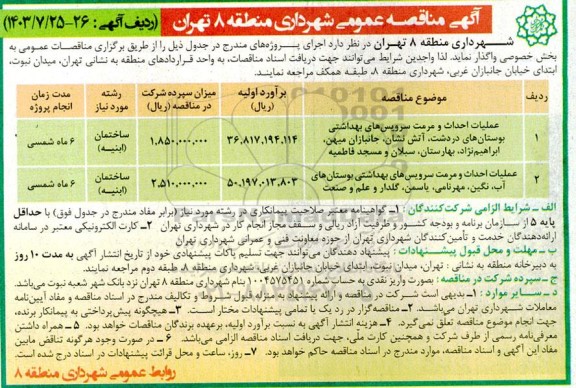 آگهی مناقصه عمومی شهرداری منطقه ۸ تهران (ردیف آگهی: ۲۶-۱۴۰۳/۷/۲۵)
شهرداری منطقه ۸ تهران در نظر دارد اجرای پروژه‌های مندرج در جدول ذیل را از طریق برگزاری مناقصات عمومی به
بخش خصوصی واگذار نماید. لذا واجدین شرایط می‌توانند جهت دریافت اسناد مناقصات، به واحد قراردادهای منطقه به نشانی تهران، میدان نبوت،
ابتدای خیابان جانبازان غربی، شهرداری منطقه ۸، طبقه همکف مراجعه نمایند.
ردیف
موضوع مناقصه
برآورد اولیه (ریال)
میزان سپرده شرکت در مناقصه (ریال)
رشته مورد نیاز
مدت زمان انجام پروژه
۱
عملیات احداث و مرمت سرویس‌های بهداشتی
بوستان‌های دردشت، آتش نشان، جانبازان میهن،
ابراهیم‌نژاد، بهارستان، سبلان و مسجد فاطمیه
۳۶,۸۱۷,۱۹۴,۱۱۴
۱,۸۵۰,۰۰۰,۰۰۰
ساختمان (ابنیه)
۶ ماه شمسی
۲
عملیات احداث و مرمت سرویس‌های بهداشتی بوستان‌های
آب، نگین، مهرنامی، یاسمن، گلدار و علم و صنعت
۵۰,۱۹۷,۰۱۳,۸۰۳
۲,۵۱۰,۰۰۰,۰۰۰
ساختمان (ابنیه)
۶ ماه شمسی
الف ـ شرایط الزامی شرکت‌کنندگان: ۱ـ گواهینامه معتبر صلاحیت پیمانکاری در رشته مورد نیاز (برابر مفاد مندرج در جدول فوق) با حداقل
پایه ۵ از سازمان برنامه و بودجه کشور و ظرفیت آزاد ریالی و سقف مجاز انجام کار در شهرداری تهران ۲ـ کارت الکترونیکی معتبر در سامانه
ارائه‌دهندگان خدمت و تأمین‌کنندگان شهرداری تهران از حوزه معاونت فنی و عمرانی شهرداری تهران
ب ـ مهلت و محل قبول پیشنهادات: پیشنهاد دهندگان می‌توانند جهت تسلیم پاکات پیشنهادی خود از تاریخ انتشار آگهی به مدت ۱۰ روز
به دبیرخانه منطقه به نشانی: تهران، میدان نبوت، ابتدای خیابان جانبازان غربی، شهرداری منطقه ۸، طبقه دوم مراجعه نمایند.
ج ـ سپرده شرکت در مناقصه: بصورت واریز نقدی به حساب شماره ۱۰۰۴۵۷۵۴۵۱ بنام شهرداری منطقه ۸ تهران نزد بانک شهر شعبه نبوت می‌باشد.
د ـ سایر موارد: ۱ـ بدیهی است شرکت در مناقصه و ارائه پیشنهاد به منزله قبول شروط و تکالیف مندرج در اسناد مناقصه و مفاد آیین‌نامه
معاملات شهرداری تهران می‌باشد. ۲ـ مناقصه‌گزار در رد یک یا تمامی پیشنهادات مختار است. ۳ـ هیچگونه پیش‌پرداختی به پیمانکار برنده،
جهت انجام موضوع مناقصه تعلق نمی‌گیرد. ۴ـ هزینه انتشار آگهی به نسبت برآورد اولیه، برعهده برندگان مناقصات خواهد بود. ۵ـ همراه داشتن
معرفی‌نامه رسمی از طرف شرکت و همچنین کارت ملی، جهت دریافت اسناد مناقصه الزامی می‌باشد. ۶ـ در صورت وجود هرگونه تناقض مابین
مفاد این آگهی و اسناد مناقصه، موارد مندرج در اسناد مناقصه حاکم خواهد بود. ۷ـ روز، ساعت و محل قرائت پیشنهادات در اسناد درج شده است.
روابط عمومی شهرداری منطقه ۸